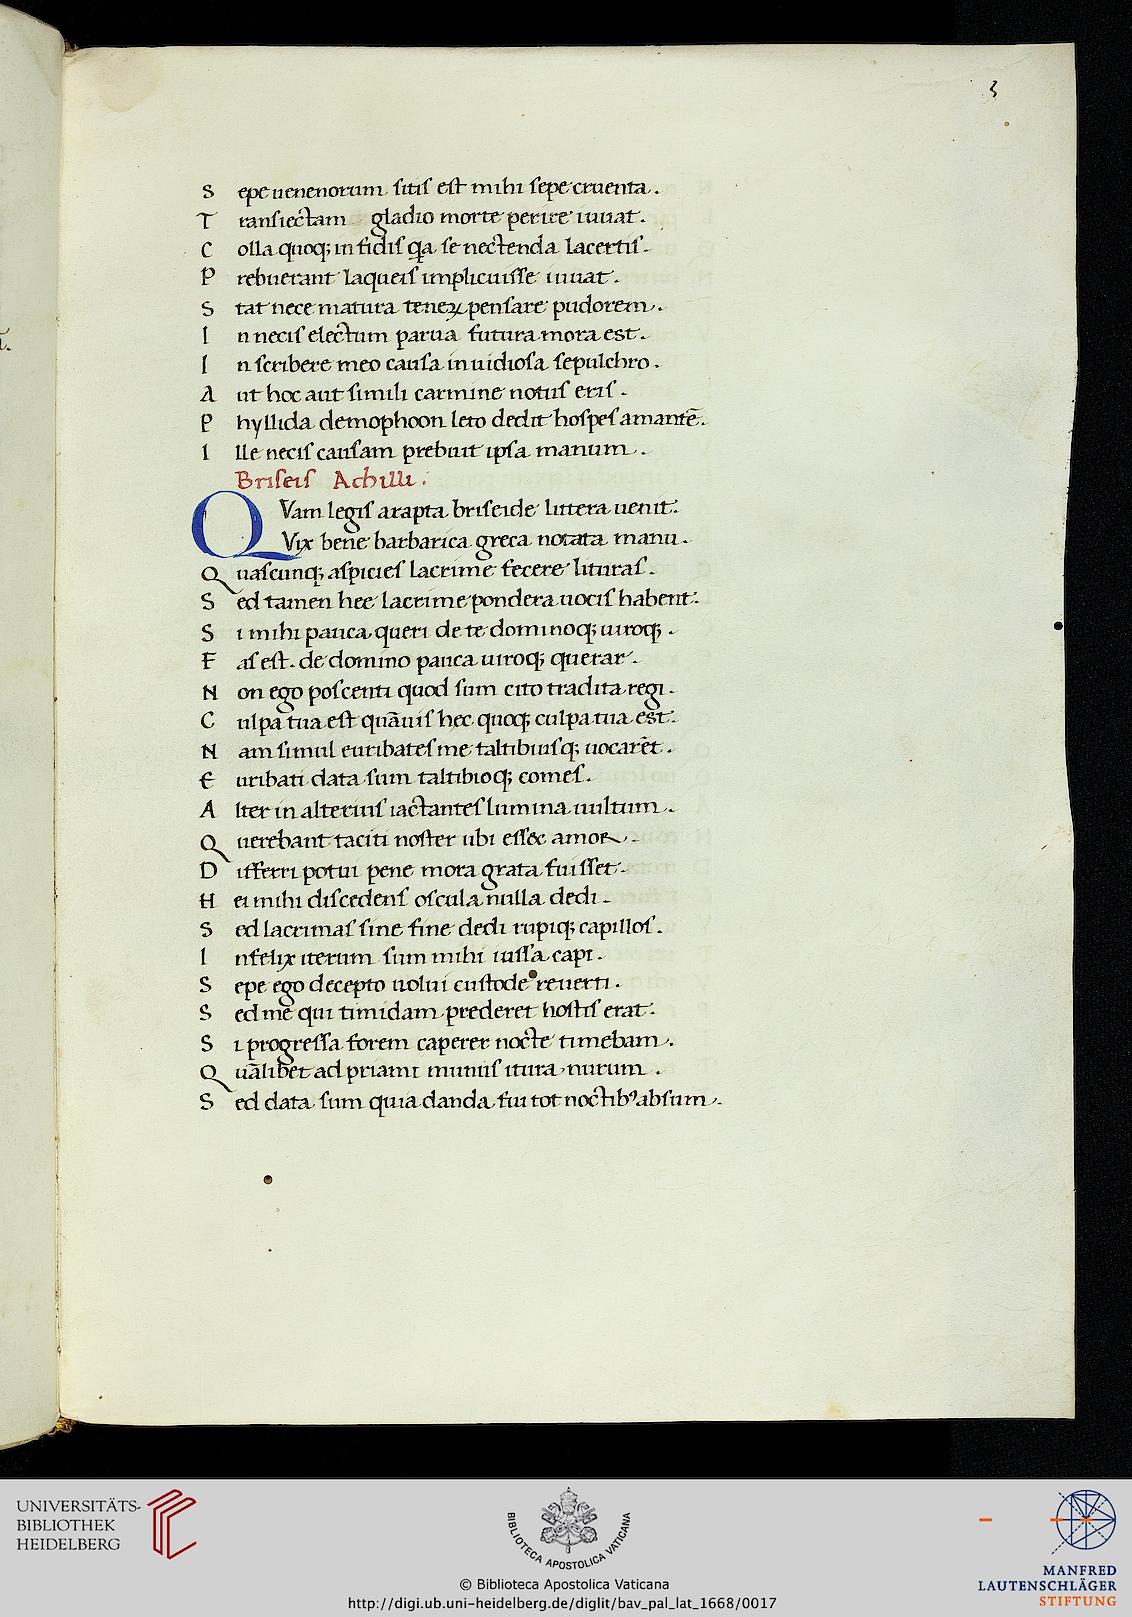 5
S epe uenenorum sitis est mihi sepe cruenta.
T ransiectam gladio morte perire iuuat.
C olla quoq; in fidis q̄a se nectenda lacertis.
P rebuerant laqueis implicuisse iuuat.
S tat nece matura teneꝝ pensare pudorem.
I n necis electum parua futura mora est.
I n scribere meo causa inuidiosa sepulchro.
A ut hoc aut simili carmine notus eris.
P hyllida demophoon leto dedit hospes amantē.
I lle necis causam prebuit ipsa manum.
Briseis Achilli.
QVam legis arapta briseide littera uenit.
Vix bene barbarica greca notata manu.
Q uascunq; aspicies lacrime fecere lituras.
S ed tamen hee lacrime pondera uocis habent.
S i mihi pauca queri de te dominoq; uiroq;.
F as est. de domino pauca uiroq; querar.
N on ego poscenti quod sum cito tradita regi.
C ulpa tua est quāuis hec quoq; culpa tua est.
N am simul euribates me taltibiusq; uocarēt.
E uribati data sum taltibioq; comes.
A lter in alterius iactantes lumina uultum.
Q uerebant taciti noster ubi esset amor.
D ifferri potui pene mora grata fuisset.
H ei mihi discedens oscula nulla dedi.
S ed lacrimas sine fine dedi rupiq; capillos.
I nfelix iterum sum mihi iussa capi.
S epe ego decepto uolui custode reuerti.
S ed me qui timidam prederet hostis erat.
S i progressa forem caperer nocte timebam.
Q uālibet ad priami munus itura nurum.
S ed data sum quia danda fui tot noctib⁹ absum.
UNIVERSITÄTS-
BIBLIOTHEK
HEIDELBERG
BIBLIOTECA APOSTOLICA VATICANA
MANFRED
LAUTENSCHLÄGER
STIFTUNG
© Biblioteca Apostolica Vaticana
http://digi.ub.uni-heidelberg.de/diglit/bav_pal_lat_1668/0017